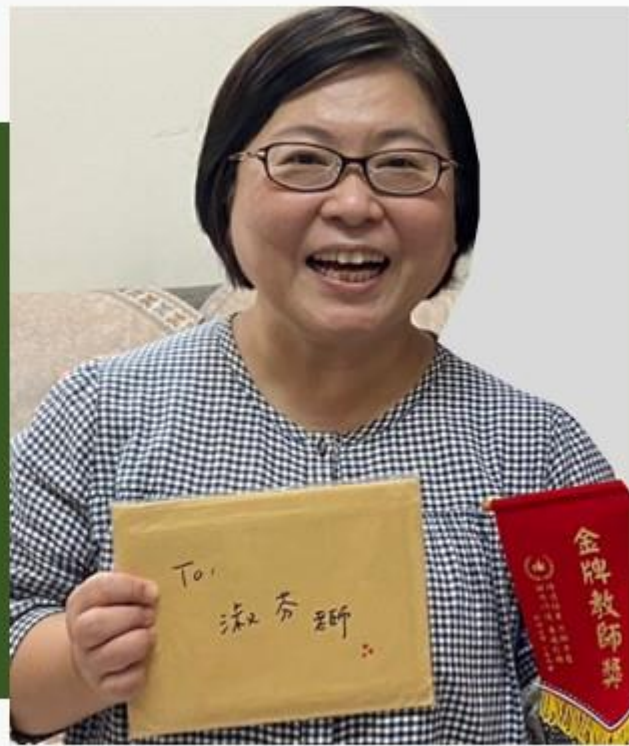 To,
淑芬老師
金牌教師獎